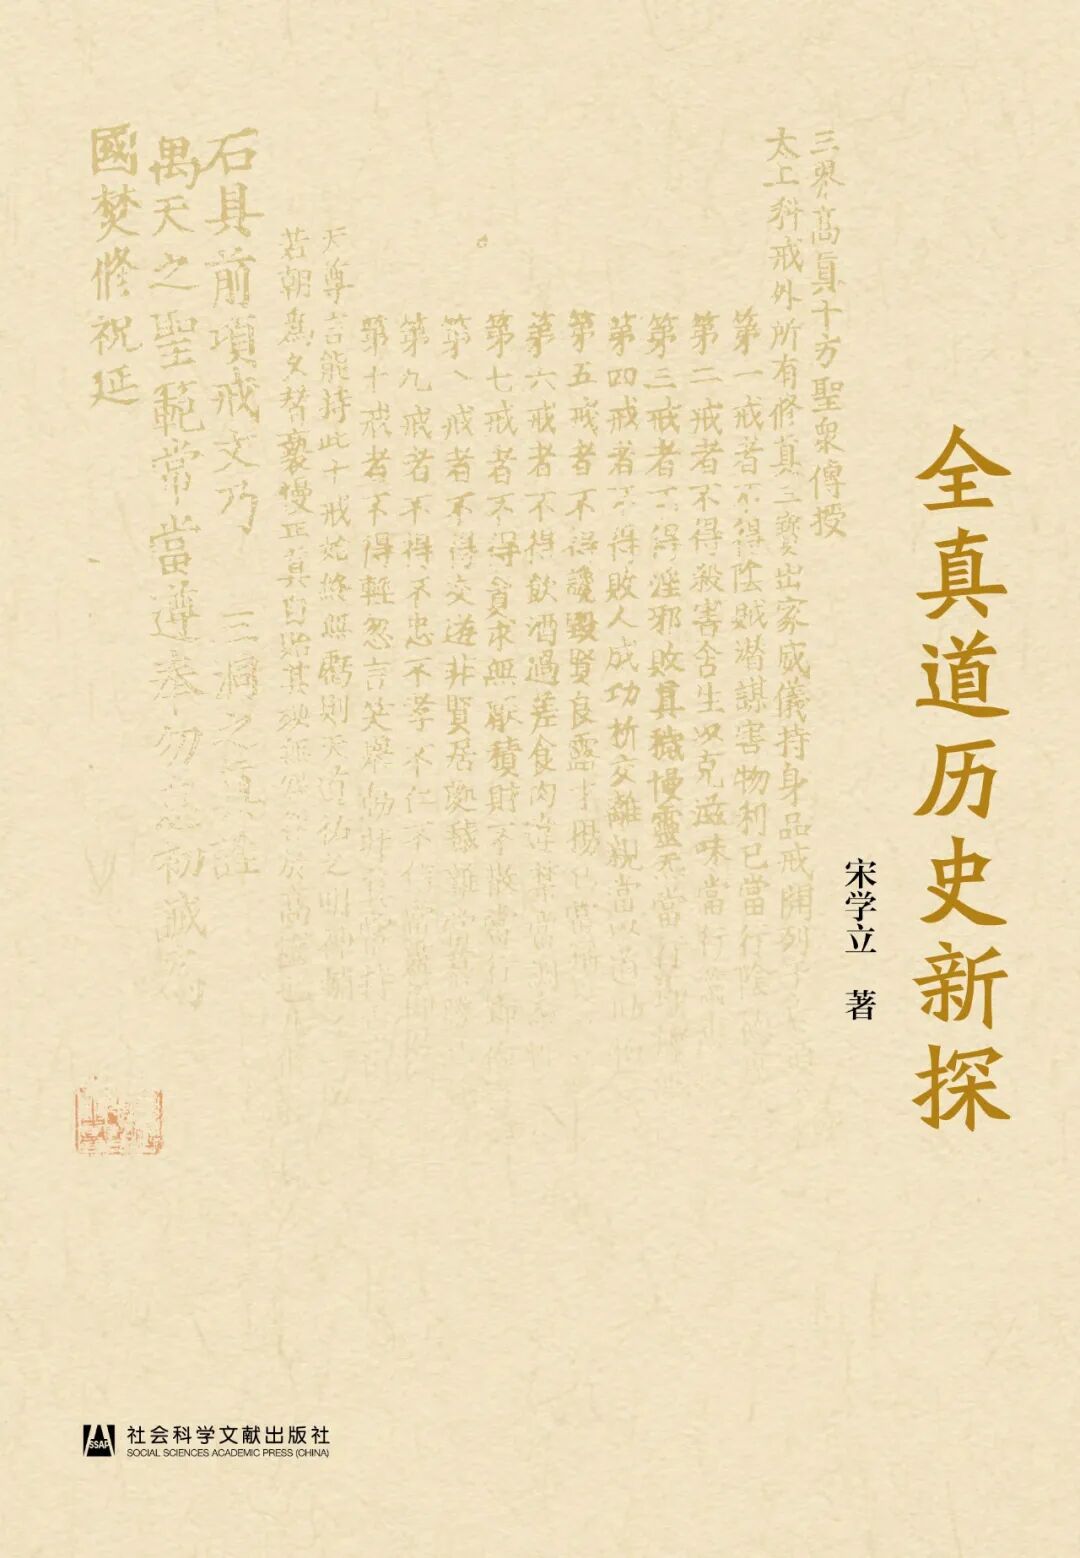 全真道历史新探
宋学立 著
三界高真十方聖衆傳授
太上科戒外所有修真三寳出家威儀持身品戒開列于
第一戒者不得陰賊潜謀害物利已當行陰
第二戒者不得殺害含生以充滋味當行
第三戒者不得淫邪敗真穢慢靈
第四戒者不得敗人成功折交離親當以
第五戒者不得讒毀賢良露才揚已當
第六戒者不得飲酒過差食肉違禁當
第七戒者不得貪求無厭積財不散當行
第八戒者不得交遊非賢居處
第九戒者不得不忠不孝不仁不
第十戒者不得輕忽言笑舉動
天尊言能持此十戒始終無虧則天
若朝爲夕替褻慢正真自貽其
石具前項戒文乃 三洞之
萬天之聖範常當遵奉勿
國焚修祝延
社会科学文献出版社
SSAP
SOCIAL SCIENCES ACADEMIC PRESS (CHINA)